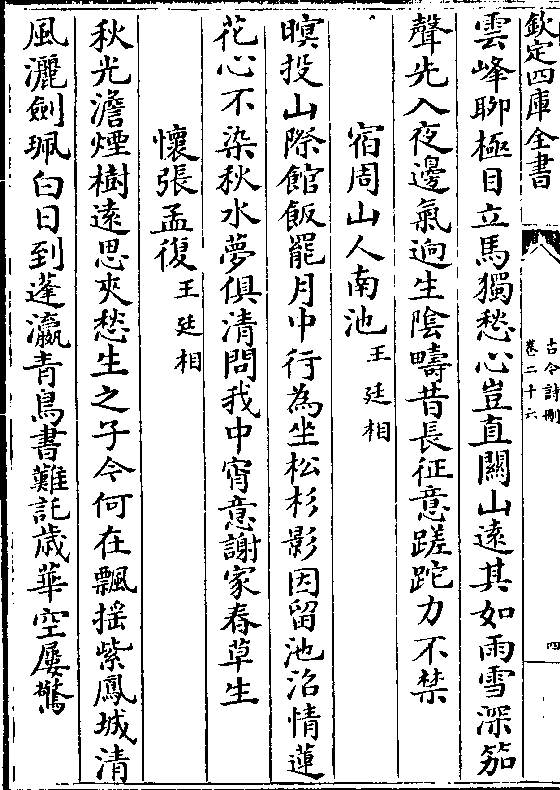 欽定四庫全書
古今詩刪
卷二十六
四
雲峰聊極目立馬獨愁心豈直關山遠其如雨雪深笳
聲先入夜邊氣逈生陰疇昔長征意蹉跎力不禁
宿周山人南池王廷相
暝投山際館飯罷月中行為坐松杉影因留池沼情蓮
花心不染秋水夢俱清問我中宵意謝家春草生
懷張孟復王廷相
秋光澹煙樹遠思夾愁生之子今何在飄摇紫鳳城清
風灑劍珮白日到蓬瀛青鳥書難託歲華空屢驚